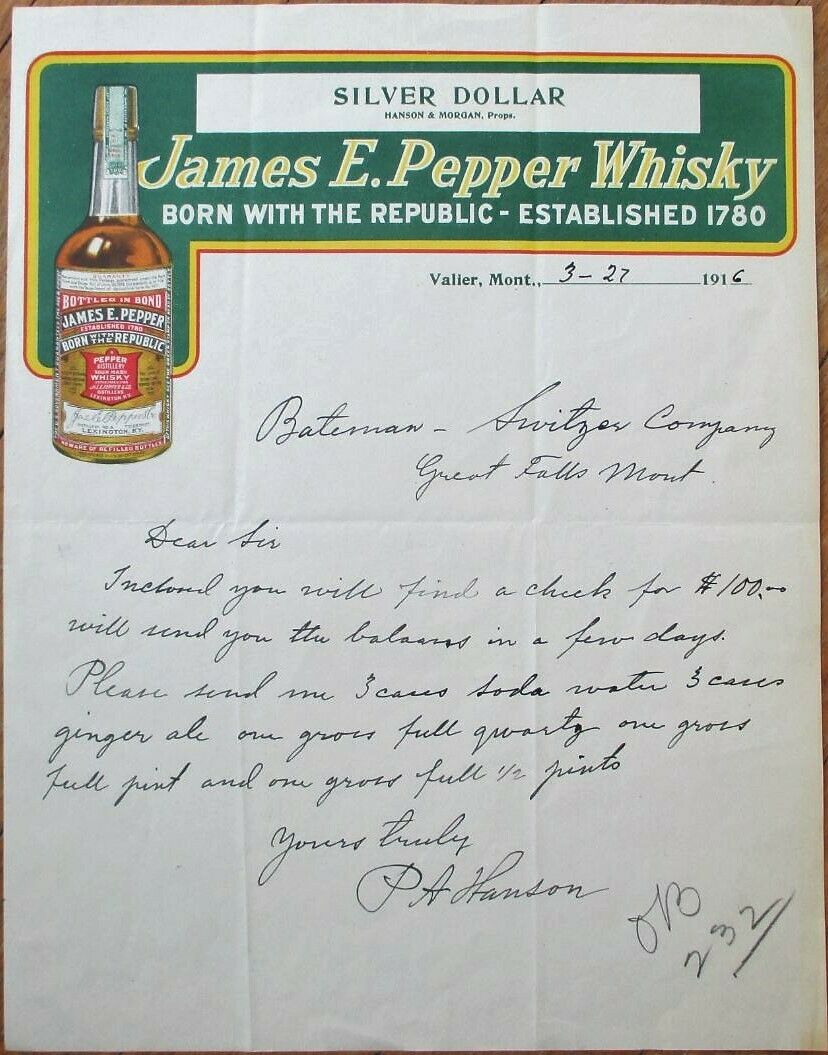 SILVER DOLLAR
HANSON & MORGAN, Props.
James E. Pepper Whisky
BORN WITH THE REPUBLIC - ESTABLISHED 1780
Valier, Mont., 3-27 1916
GUARANTY
BOTTLED IN BOND
JAMES E. PEPPER
ESTABLISHED 1780
BORN WITH THE REPUBLIC
PEPPER
DISTILLERY
SOUR MASH
WHISKY
DISTILLERS
LEXINGTON, KY.
Jas. E. Pepper & Co
LEXINGTON, KY.
BEWARE OF REFILLED BOTTLES
Bateman - Switzer Company
Great Falls Mont.
Dear Sir
Inclosed you will find a check for $100.00
will send you the balaans in a few days.
Please send me 3 cases soda water 3 cases
ginger ale one gross full quartz one gross
full pint and one gross full 1/2 pints
Yours truly
P A Hanson
232